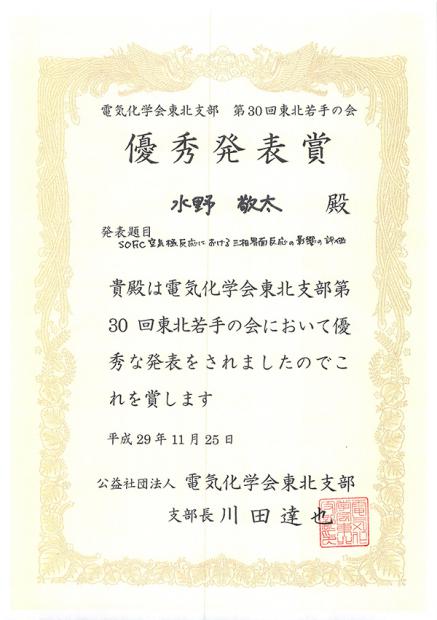 電気化学会東北支部 第30回東北若手の会
優秀発表賞
水野 敬太 殿
発表題目
SOFC空気極反応における三相界面反応の影響の評価
貴殿は電気化学会東北支部第
30 回東北若手の会において優
秀な発表をされましたのでこ
れを賞します
平成29年11月25日
公益社団法人 電気化学会東北支部
支部長 川田達也